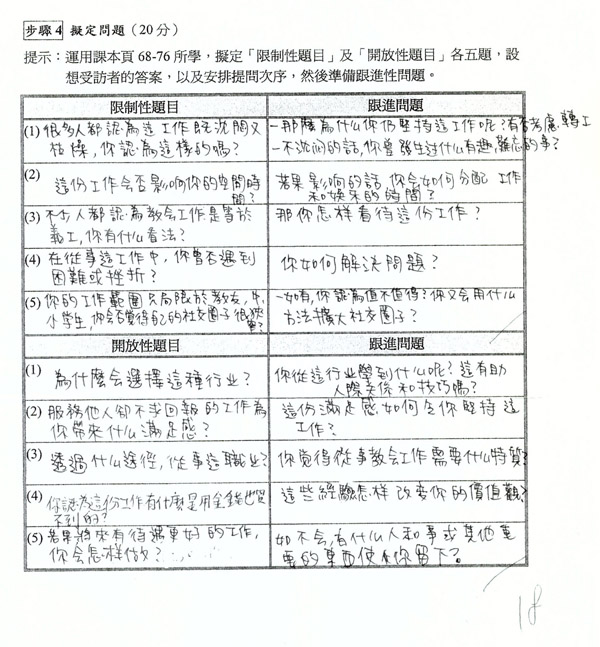 步驟4 擬定問題（20分）
提示：運用課本頁 68-76 所學，擬定「限制性題目」及「開放性題目」各五題，設
想受訪者的答案，以及安排提問次序，然後準備跟進性問題。
限制性題目
跟進問題
(1) 很多人都認為這工作既沉悶又
枯燥，你認為這樣的嗎？
-那麼為什么你仍堅持這工作呢？有否考慮轉工
-不沉闷的話，你曾發生过什么有趣，難忘的事？
(2) 這份工作会否影响你的空閒時
間？
若果影响的話，你会如何分配 工作
和娱乐的時間？
(3) 不少人都認為教会工作是等於
義工，你有什么看法？
那你怎样看待這份工作？
(4) 在從事這工作中，你曾否遇到
困難或挫折？
你如何解决問題？
(5) 你的工作範圍只局限於教友，中，
小学生，你会否覺得自己的社交圈子很狹
窄？
-如有，你認為值不值得？你又会用什么
方法擴大社交圈子？
開放性題目
跟進問題
(1) 為什麼会選擇這種行业？
你從這行业學到什么呢？這有助
人際关係和技巧嗎？
(2) 服務他人卻不求回報的工作為
你帶來什么滿足感？
這份滿足感如何令你堅持這
工作？
(3) 透過什么途徑，從事這職业？
你覺得從事教会工作需要什么特質？
(4) 你認為這份工作有什麼是用金錢也買
不到的？
這些經驗怎样改变你的價值觀？
(5) 若果將來有待遇更好的工作，
你会怎样做？
如不会，有什么人和事或其他重
要的東西使你留下？
18